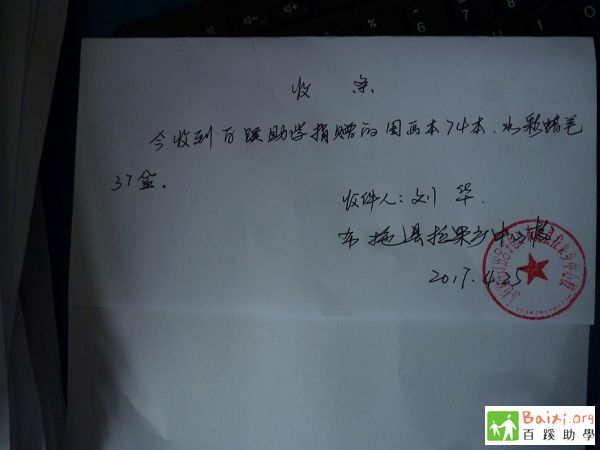 收 条
今收到百蹊助学捐赠的图画本74本.水彩蜡笔
37盒。
收件人:刘 华.
布拖县拉果乡中心校
2017.4.25
Baixi.org
百蹊助學